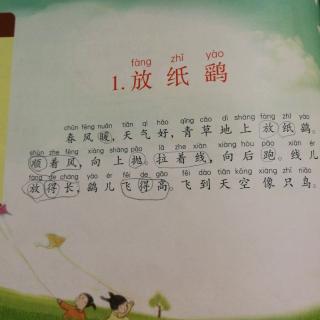 fàng zhǐ yào
1.放纸鹞
chūn fēng nuǎn tiān qì hǎo qīng cǎo dì shang fàng zhǐ yào
春风暖,天气好,青草地上放纸鹞。
shùn zhe fēng xiàng shàng pāo lā zhe xiàn xiàng hòu pǎo xiàn ér
顺着风,向上抛。拉着线,向后跑。线儿
fàng de cháng yào ér fēi de gāo fēi dào tiān kōng xiàng zhī niǎo
放得长,鹞儿飞得高。飞到天空像只鸟。